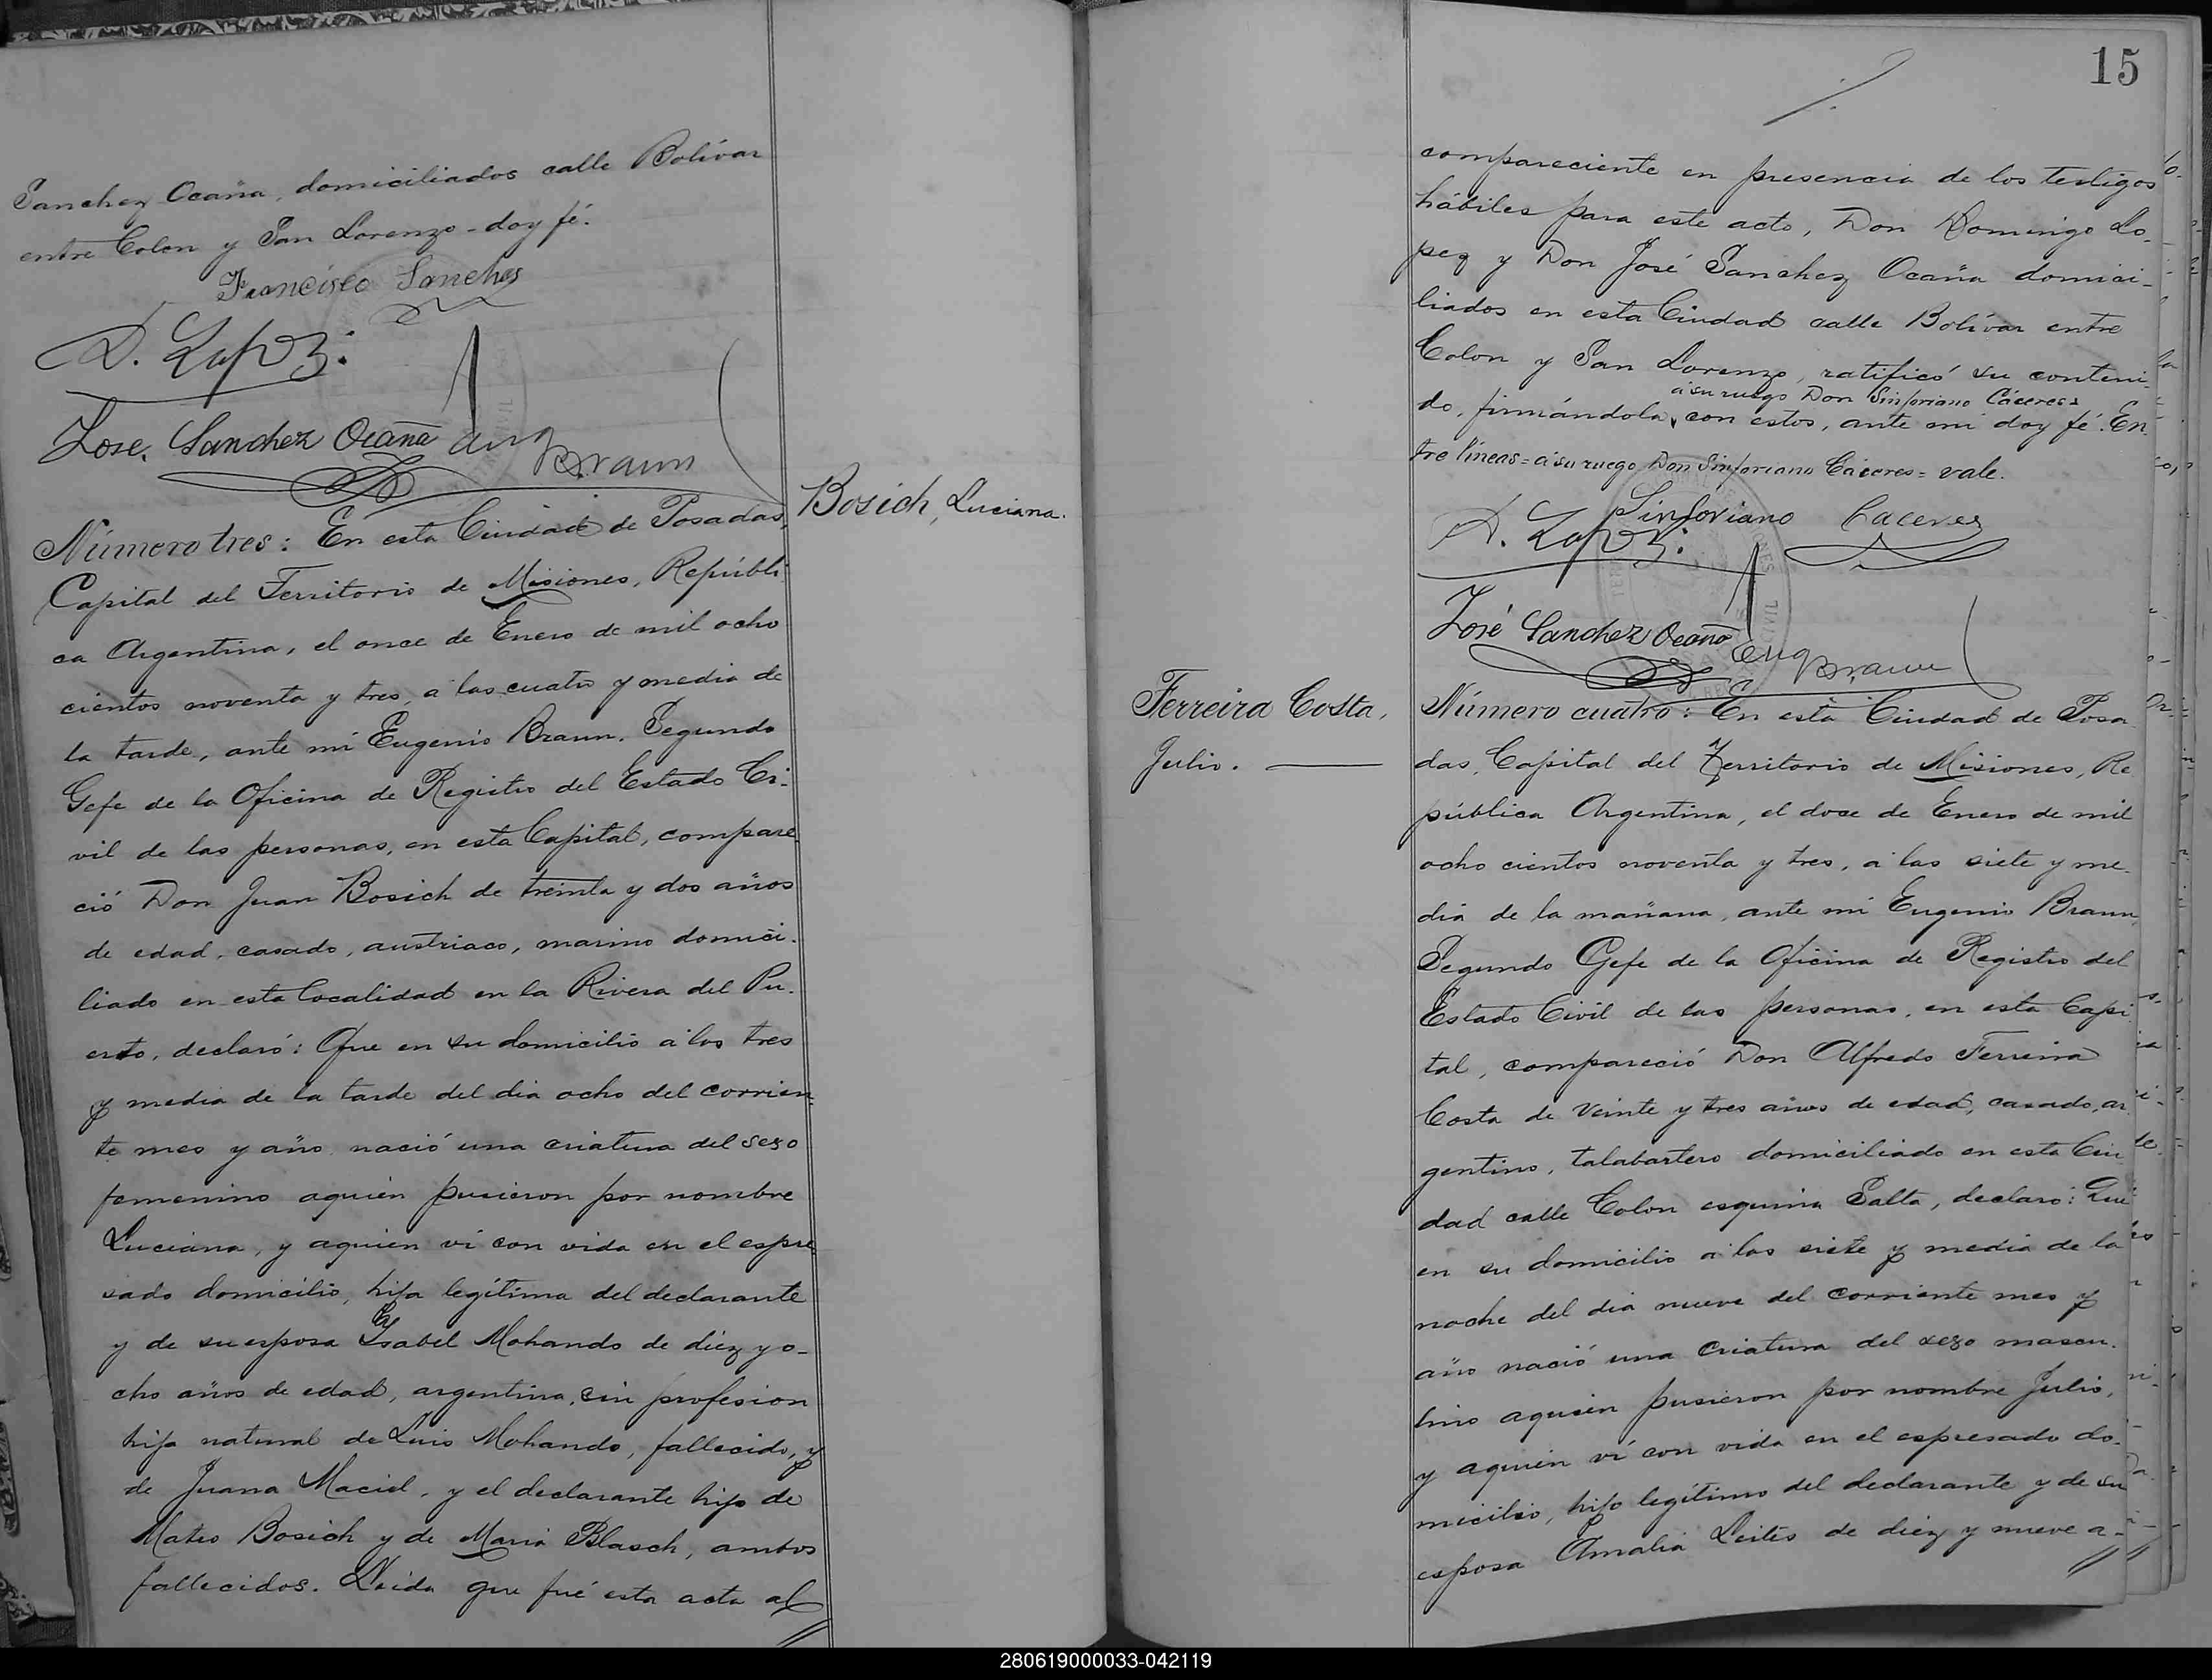 Sanchez Ocaña, domiciliados calle Bolívar
entre Colon y San Lorenzo - doy fé.
Francisco Sanches
D. Lopez.
José Sanchez Ocaña Eug Braun
Bosich, Luciana.
Número tres: En esta Ciudad de Posadas,
Capital del Territorio de Misiones, Repúbli
ca Argentina, el once de Enero de mil ocho
cientos noventa y tres, á las cuatro y media de
la tarde, ante mi Eugenio Braun, Segundo
Gefe de la Oficina de Registro del Estado Ci-
vil de las personas, en esta Capital, compare
ció Don Juan Bosich de treinta y dos años
de edad, casado, austriaco, marino domici-
liado en esta localidad en la Rivera del Pu-
erto, declaró: Que en su domicilio á las tres
y media de la tarde del dia ocho del corrien-
te mes y año nació una criatura del sexo
femenino aquien pusieron por nombre
Luciana, y aquien ví con vida en el espre
sado domicilio, hija legítima del declarante
y de su esposa Ysabel Mohando de diez y o-
cho años de edad, argentina, sin profesion
hija natural de Luis Mohando, fallecido, y
de Juana Maciel, y el declarante hijo de
Mateo Bosich y de Maria Blasch, ambos
fallecidos. Leida que fué esta acta al
15
compareciente en presencia de los testigos
hábiles para este acto, Don Domingo Lo-
pez y Don José Sanchez Ocaña domici-
liados en esta Ciudad calle Bolívar entre
Colon y San Lorenzo, ratificó su conteni-
á su ruego Don Sinforiano Cáceres
do, firmándola, con estos, ante mi doy fé. En
tre líneas = á su ruego Don Sinforiano Cáceres = vale.
Sinforiano Caceres
D. Lopez.
José Sanchez Ocaña Eug Braun
Ferreira Costa,
Julio.
Número cuatro: En esta Ciudad de Posa
das, Capital del Territorio de Misiones, Re
pública Argentina, el doce de Enero de mil
ocho cientos noventa y tres, á las siete y me-
dia de la mañana, ante mi Eugenio Braun,
Segundo Gefe de la Oficina de Registro del
Estado Civil de las personas, en esta Capi
tal, compareció Don Alfredo Ferreira
Costa de veinte y tres años de edad, casado, ar
gentino, talabartero domiciliado en esta Ciu
dad calle Colon esquina Salta, declaró: Que
en su domicilio á las siete y media de la
noche del dia nueve del corriente mes y
año nació una criatura del sexo mascu-
lino aquien pusieron por nombre Julio,
y aquien ví con vida en el espresado do-
micilio, hijo legítimo del declarante y de su
esposa Amalia Leites de diez y nueve a-
280619000033-042119